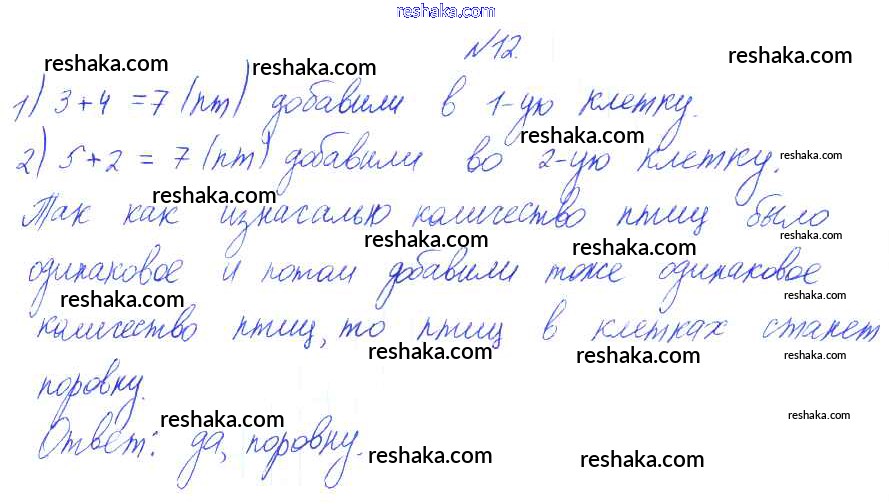 reshaka.com
№12.
reshaka.com reshaka.com reshaka.com
1) 3+4 =7 (пт) добавили в 1-ую клетку.
reshaka.com
2) 5+2 = 7 (пт) добавили во 2-ую клетку.
reshaka.com
reshaka.com
Так как изначально количество птиц было
reshaka.com reshaka.com reshaka.com
одинаковое и потом добавили тоже одинаковое
reshaka.com reshaka.com
количество птиц, то птиц в клетках станет
reshaka.com reshaka.com reshaka.com
поровну.
reshaka.com reshaka.com
Ответ: да, поровну.
reshaka.com reshaka.com